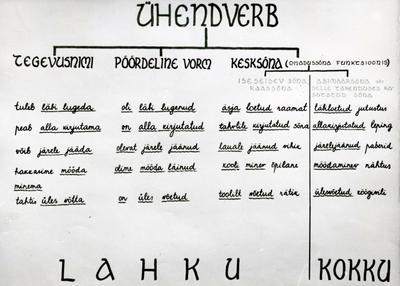 ÜHENDVERB
TEGEVUSNIMI PÖÖRDELINE VORM KESKSÕNA (OMADUSSÕNA FUNKTSIOONIS)
ISESEISEV SÕNA ABIMÄÄRSÕNA
RAASSÕNA DELLE TÄHENDUSES KA
SUTATUD SÕNA
tuleb läbi lugeda oli läbi lugenud asja loetud raamat läbiloetud jutustus
peab alla kirjutama on alla kirjutatud tahvlile kirjutatud sõna allakirjutatud leping
võib järele jääda olevat järele jäänud lauale jäänud järelejäänud paberid
hakkasime mööda olime mööda läinud kooli minev õpilane möödaminev nähtus
minema
tahtis üles võtta on üles võetud toolilt võetud rätik ülesvõetud
LAHKU KOKKU